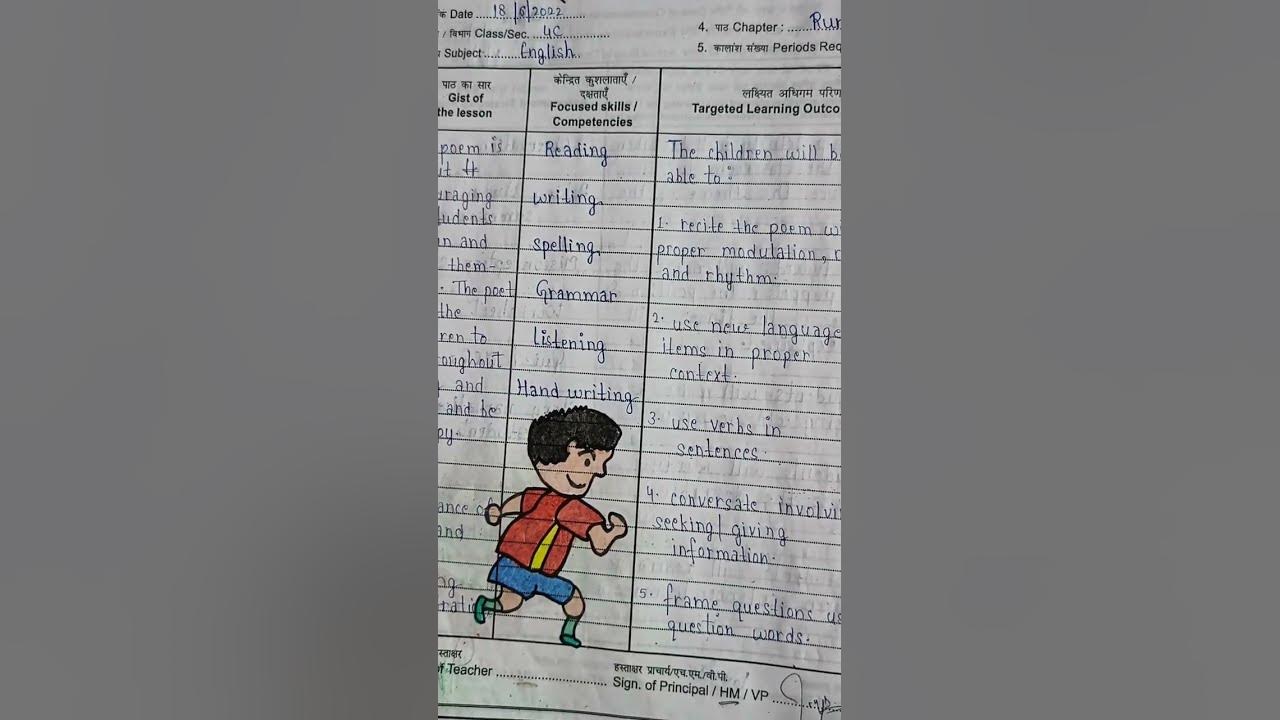 क Date 18/6/2022
/ विभाग Class/Sec. 4C
Subject English
4. पाठ Chapter : Run
5. कालांश संख्या Periods Req
पाठ का सार
Gist of
the lesson
केन्द्रित कुशलाताएँ /
दक्षताएँ
Focused skills /
Competencies
लक्ष्यित अधिगम परिण
Targeted Learning Outco
poem is
uraging
tudents
n and
them-
. The poet
the
ren to
oughout
and
and be
py.
ance of
and
ng
Reading
writing
spelling
Grammar
listening
Hand writing
The children will b
able to :
1. recite the poem wi
proper modulation,
and rhythm.
2. use new language
items in proper
context.
3. use verbs in
sentences.
4. conversate involvi
seeking/giving
information.
5. frame questions us
question words.
स्ताक्षर
of Teacher
हस्ताक्षर प्राचार्य/एच.एम./वी.पी.
Sign. of Principal / HM / VP